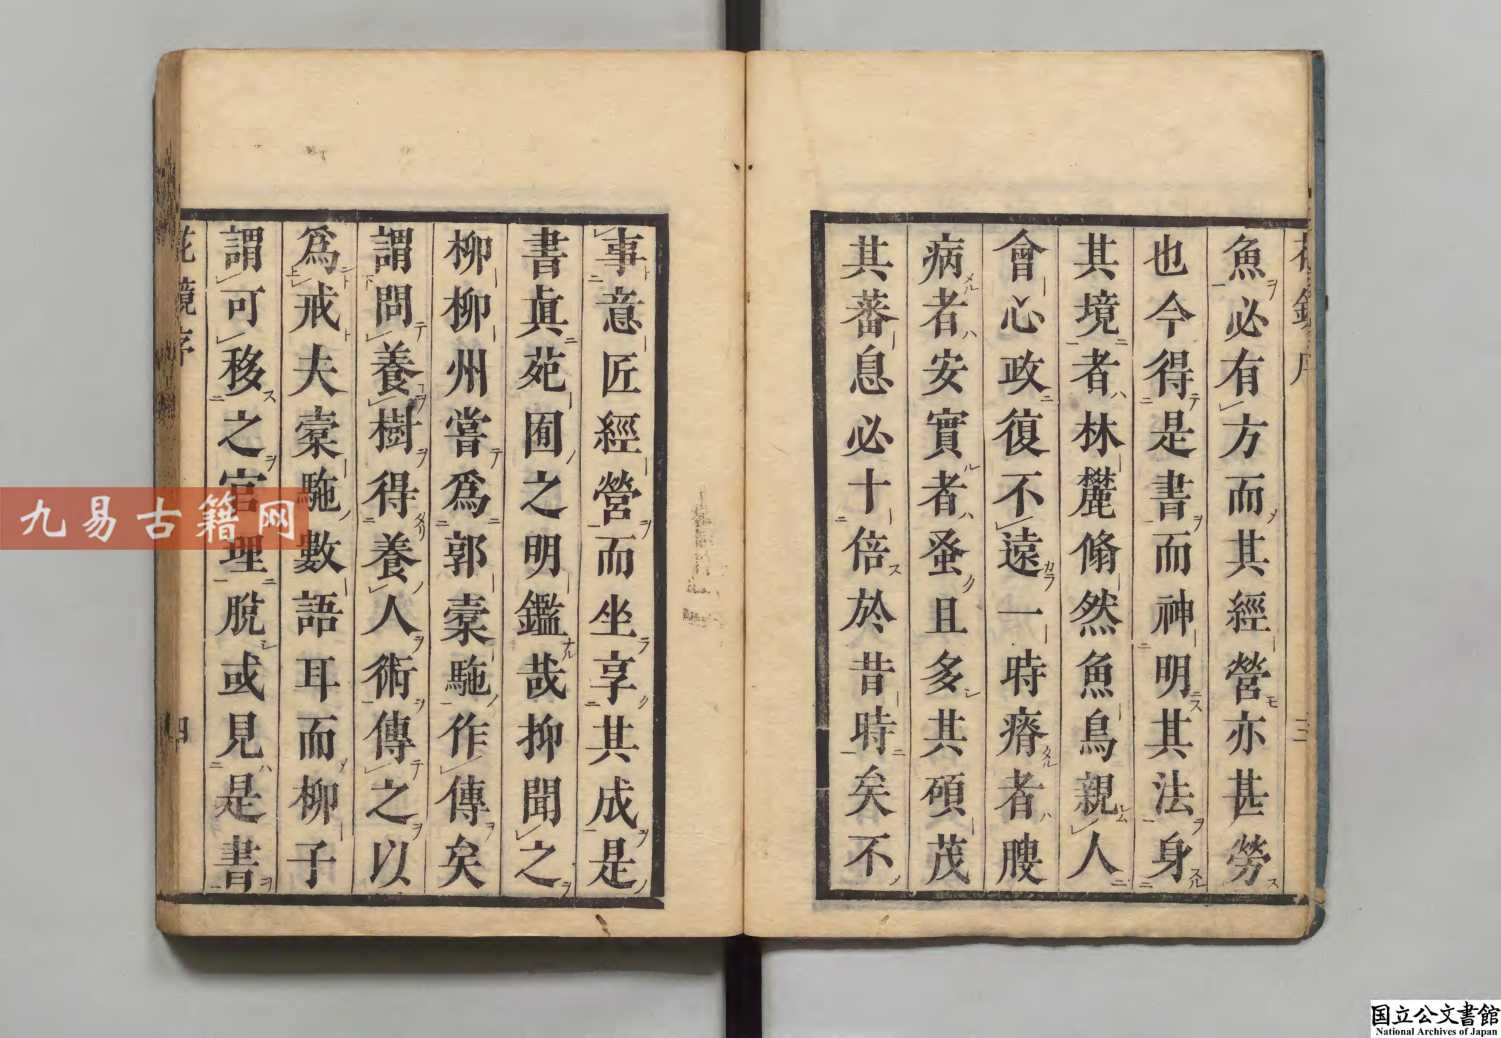 花鏡序 三
魚必有方而其經營亦甚勞
也今得是書而神明其法身
其境者林麓翛然魚鳥親人
會心政復不遠一時瘠者腴
病者安實者蚤且多其碩茂
其蕃息必十倍於昔時矣不
事意匠經營而坐享其成是
書眞苑囿之明鑑哉抑聞之
柳柳州嘗爲郭槖駞作傳矣
謂問養樹得養人術傳之以
爲戒夫槖駞數語耳而柳子
謂可移之官理脫或見是書
花鏡序 四
九易古籍网
国立公文書館
National Archives of Japan